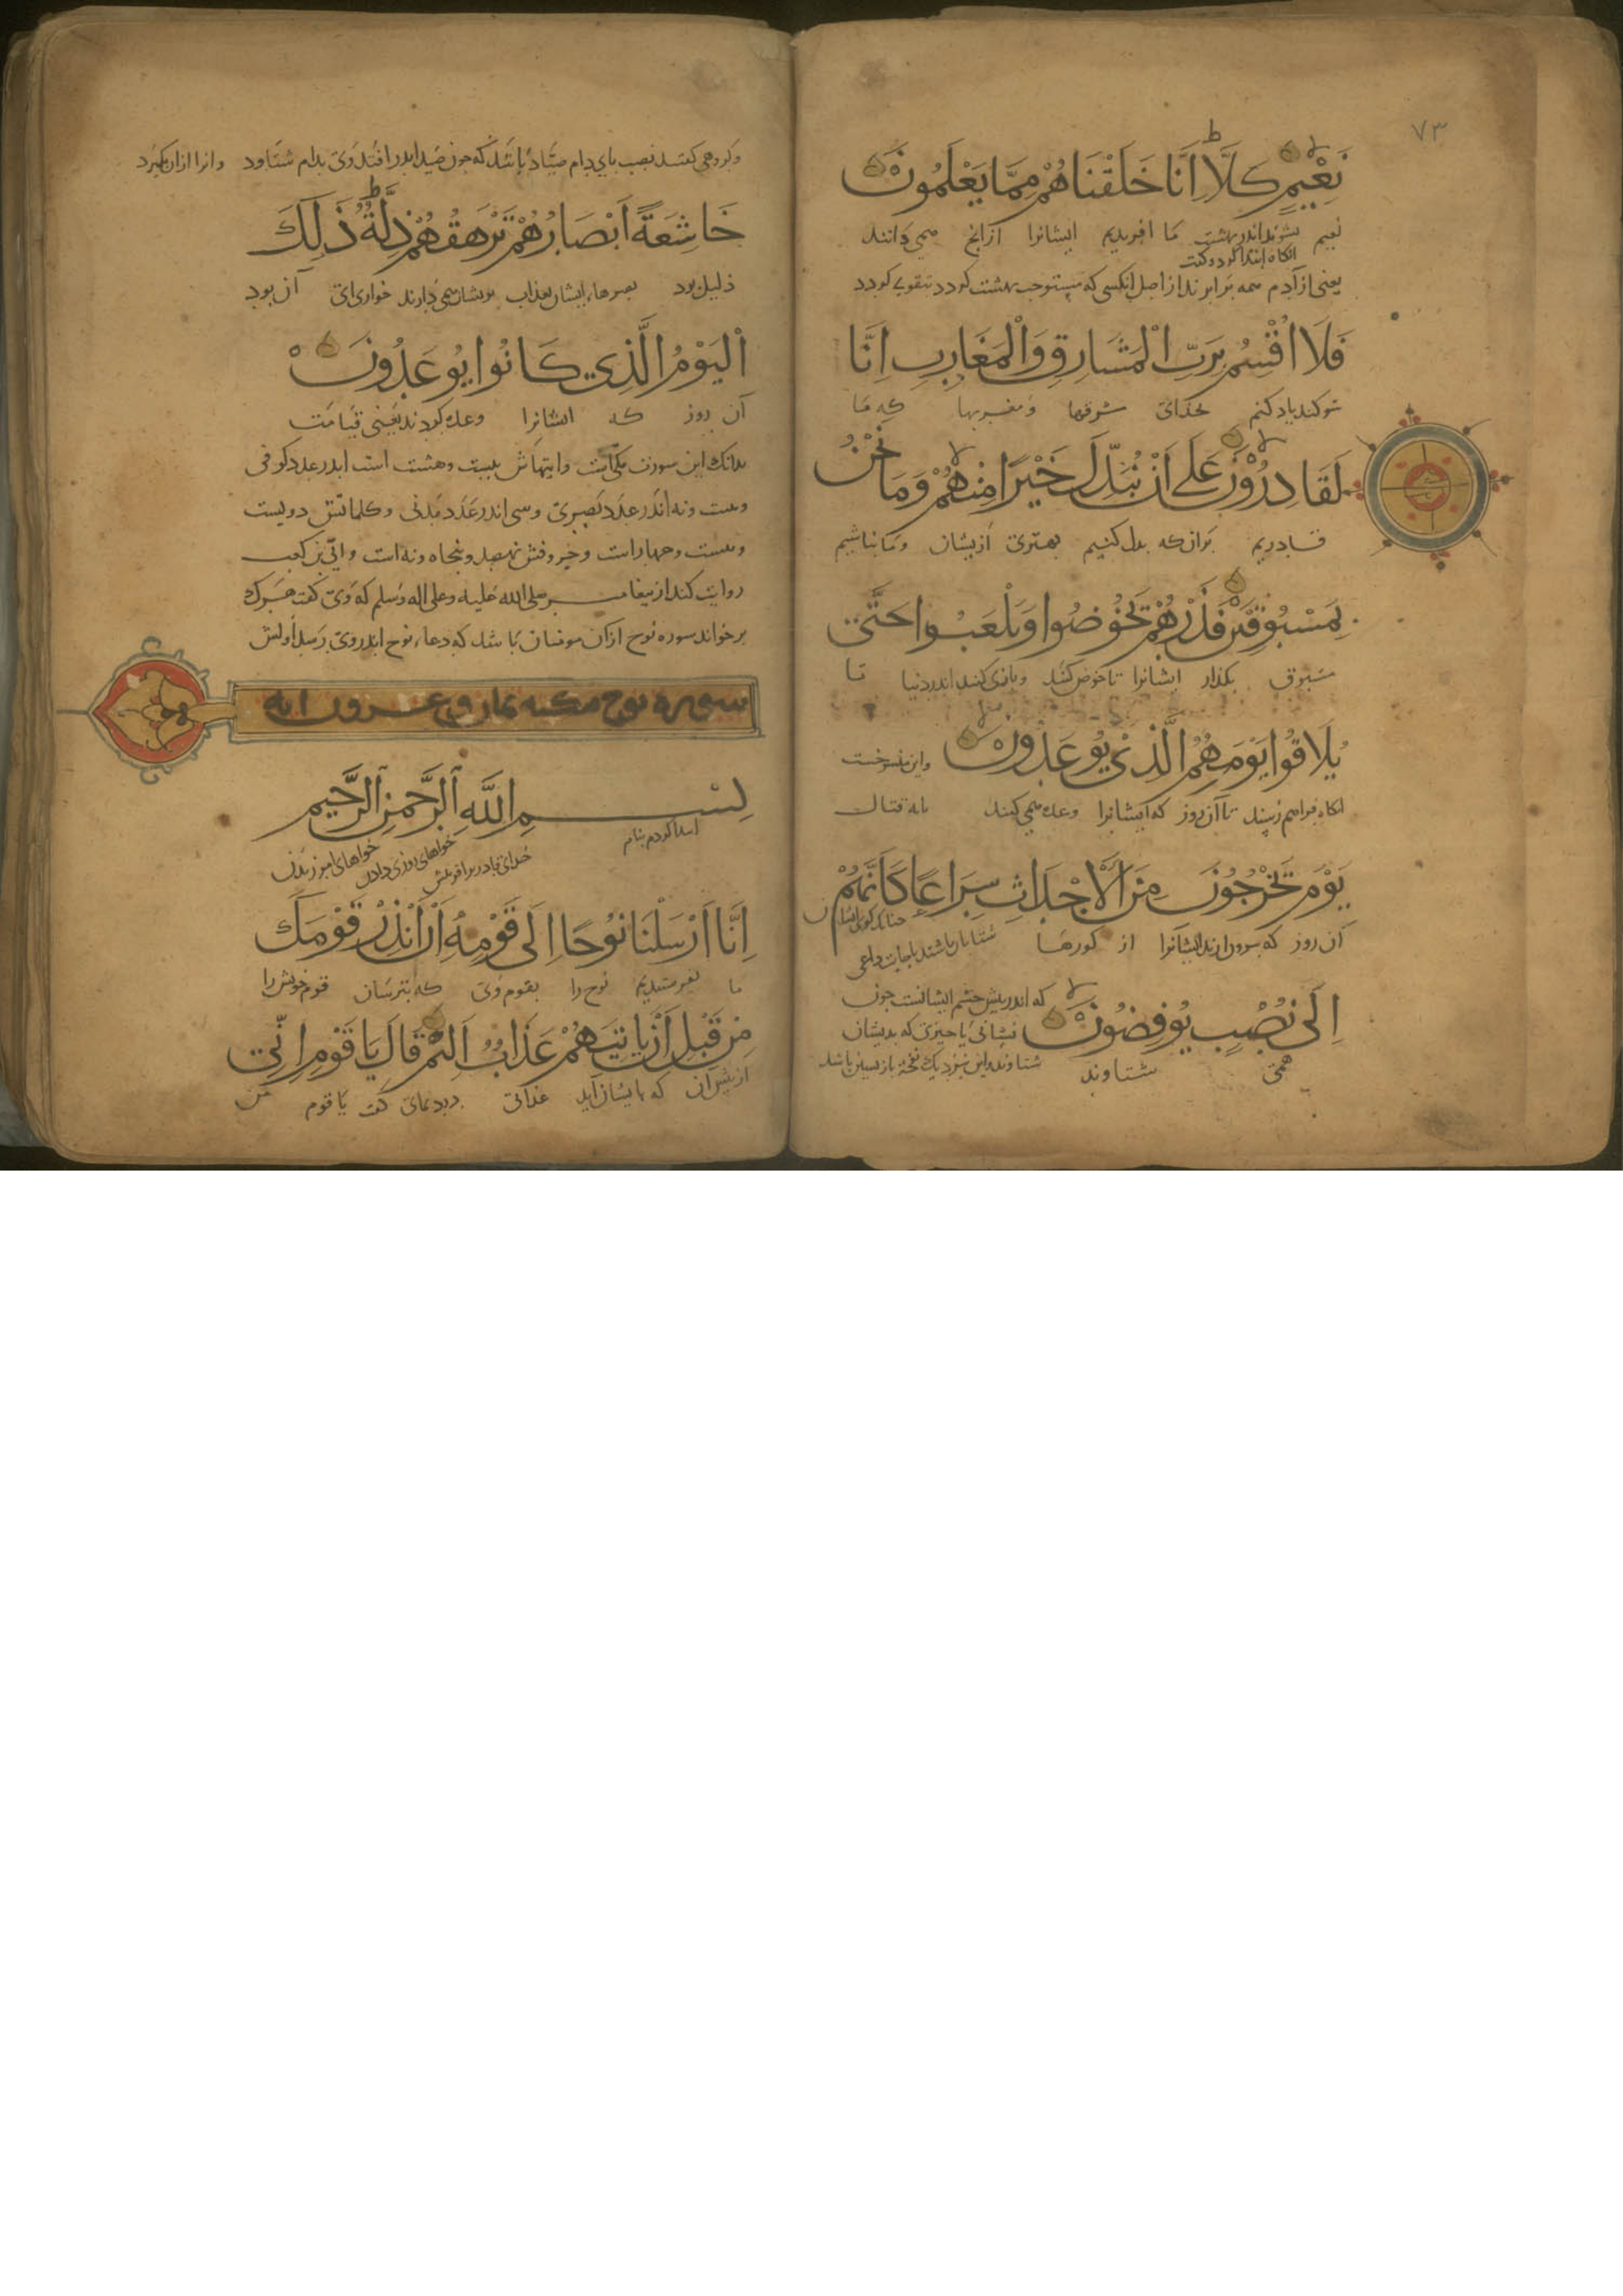 ٧٣
نَعِيمٍ كَلَّا اِنَّا خَلَقْنَاهُمْ مِمَّا يَعْلَمُونَ
نعیم بشوند اندر بهشت ما افریدیم ایشانرا از انج همی دانند
انکاه ابتدا کرد و کفت
یعنی از آدم همه برابرند از اصل انکسی که مستوجب بهشت کردد بتقوی کردد
فَلَا اُقْسِمُ بِرَبِّ الْمَشَارِقِ وَالْمَغَارِبِ اِنَّا
سوکند یاد کنم بخدای مشرقها و مغربها که ما
لَقَادِرُوْنَ عَلَى اَنْ نُبَدِّلَ خَيْرًا مِنْهُمْ وَمَا نَحْنُ
قادریم بران که بدل کنیم بهتری ازیشان و ما نباشیم
بِمَسْبُوقِيْنَ فَذَرْهُمْ يَخُوضُوا وَيَلْعَبُوا حَتَّى
مسبوق بکذار ایشانرا تا خوض کنند و بازی کنند اندر دنیا تا
يُلَاقُوا يَوْمَهُمُ الَّذِيْ يُوْعَدُوْنَ
واین منسوخست
انکاه فراهم رسند تا آن روز که ایشانرا وعده همی کنند بایة قتال
يَوْمَ يَخْرُجُوْنَ مِنَ الْاَجْدَاثِ سِرَاعًا كَاَنَّهُمْ
آن روز که بیرون ارند ایشانرا از کورها شتابان باشند باجابت داعی
اِلَى نُصُبٍ يُوْفِضُوْنَ
که اندر پیش چشم ایشانست جون
نشانی یا جیزی که بدیشان
همی شتاوند
شتاوند واین نزدیک نفخۀ بازپسین باشد
وکروهی کفتند نصب بای دام صیّاد باشد که جون صید اندر افتد وی بدام شتاود وانرا ازان بکیرد
خَاشِعَةً اَبْصَارُهُمْ تَرْهَقُهُمْ ذِلَّةٌ ذَلِكَ
ذلیل بود بصرهاء ایشان بعذاب بریشان همی دارند خواری ای آن بود
اَلْيَوْمُ الَّذِي كَانُوا يُوعَدُونَ
آن روز که ایشانرا وعده کردند یعنی قیامت
بدانک این سورت مکّی است وایتهاش بیست وهشت است اندر عدد کوفی
وبیست ونه اندر عدد بصری وسی اندر عدد مدنی وکلماتش دویست
وبیست وچهار است وحروفش نهصد وپنجاه ونه است وابیّ بن کعب
روایت کند از پیغامبر صلی الله علیه وعلی اله وسلم که وی کفت هرک
برخواند سوره نوح از آن مومنان باشد که دعاء نوح اندر وی رسد اولش
سورة نوح مكية ثمان وعشرون اية
بِسْمِ اللَّهِ الرَّحْمَنِ الرَّحِيمِ
ابتدا کردم بنام خدای قادر بر افرینش خواهای روزی دادن خواهای امرزیدن
اِنَّا اَرْسَلْنَا نُوْحًا اِلَى قَوْمِهِ اَنْ اَنْذِرْ قَوْمَكَ
ما بفرستدیم نوح را بقوم وی که بترسان قوم خویش را
مِنْ قَبْلِ اَنْ يَاْتِيَهُمْ عَذَابٌ اَلِيْمٌ قَالَ يَا قَوْمِ اِنِّي
از پیش آن که بایشان آید عذابی دردنمای کفت یا قوم من